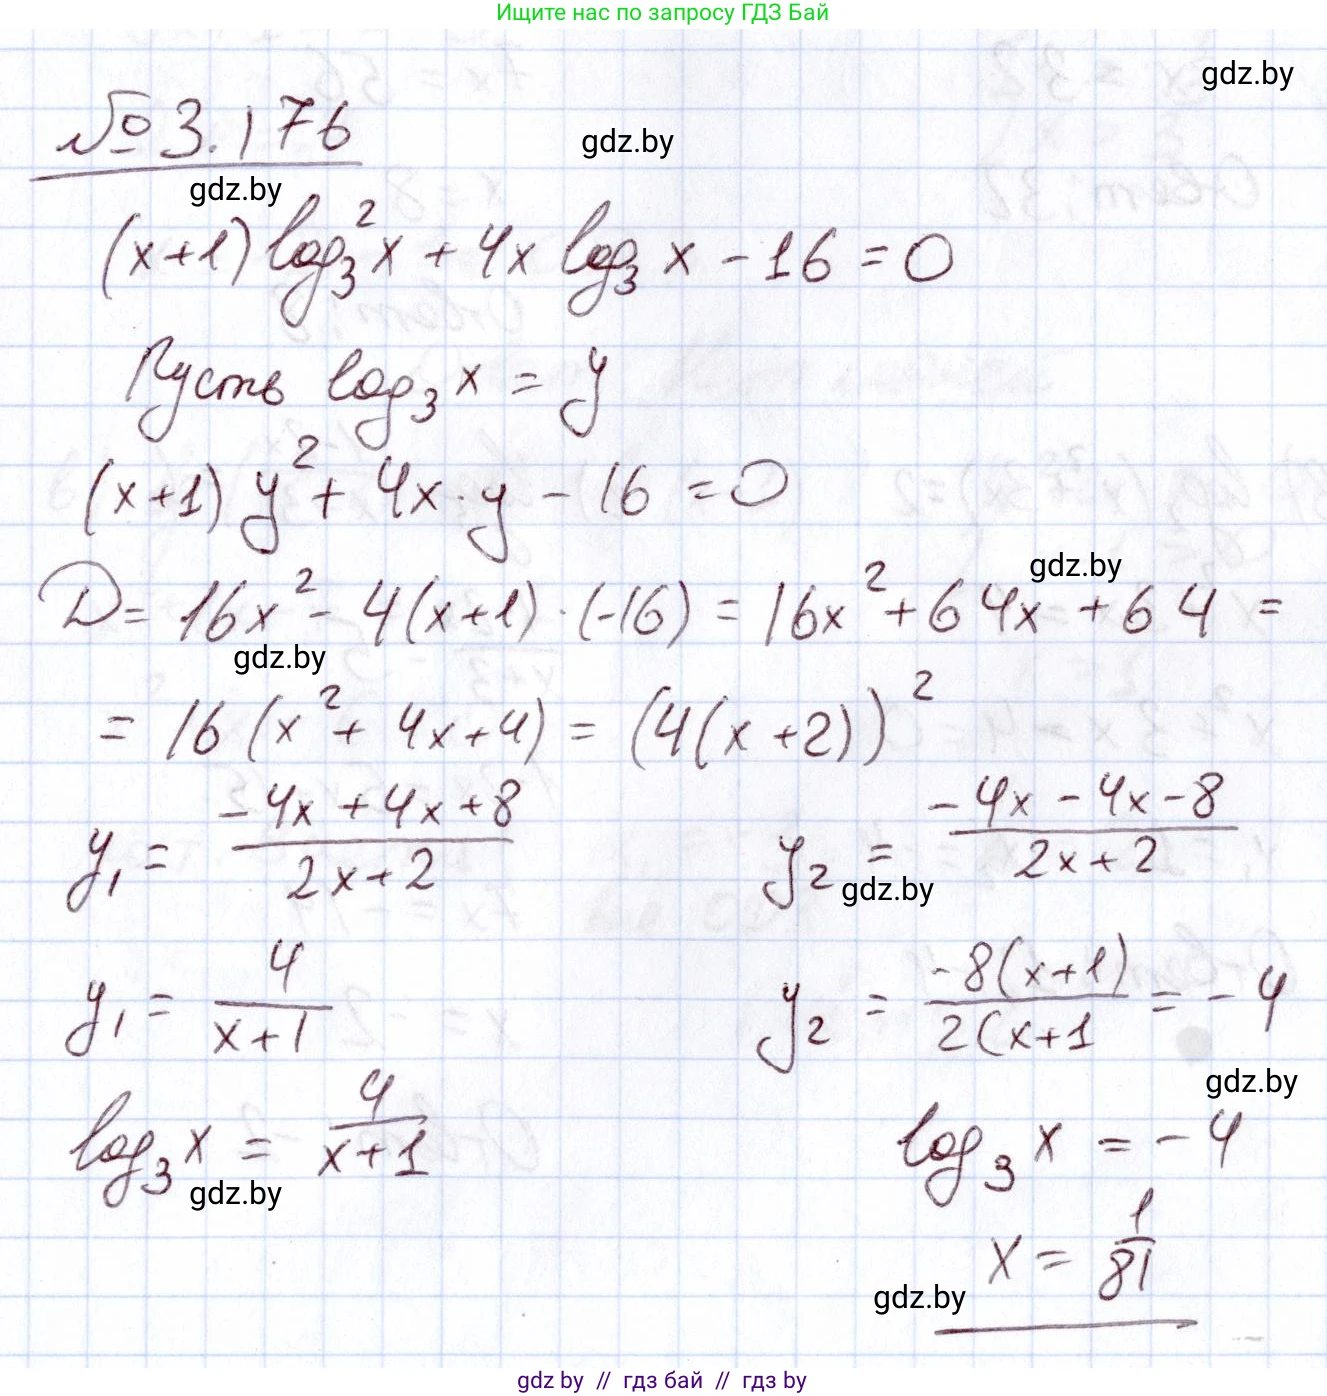 Ищите нас по запросу ГДЗ Бай
gdz.by
№ 3.176
gdz.by
gdz.by
(x+1) log₃²x + 4x log₃ x - 16 = 0
Пусть log₃ x = y
(x+1) y² + 4x·y - 16 = 0
gdz.by
D = 16x² - 4(x+1)·(-16) = 16x² + 64x + 64 =
gdz.by
= 16(x² + 4x+4) = (4(x+2))²
y₁ = (-4x + 4x + 8)/(2x+2) y₂ = (-4x - 4x - 8)/(2x+2)
gdz.by
y₁ = 4/(x+1) y₂ = -8(x+1)/2(x+1 = -4
gdz.by
log₃ x = 4/(x+1) log₃ x = -4
gdz.by
x = 1/81
gdz.by
gdz by // гдз бай // gdz by